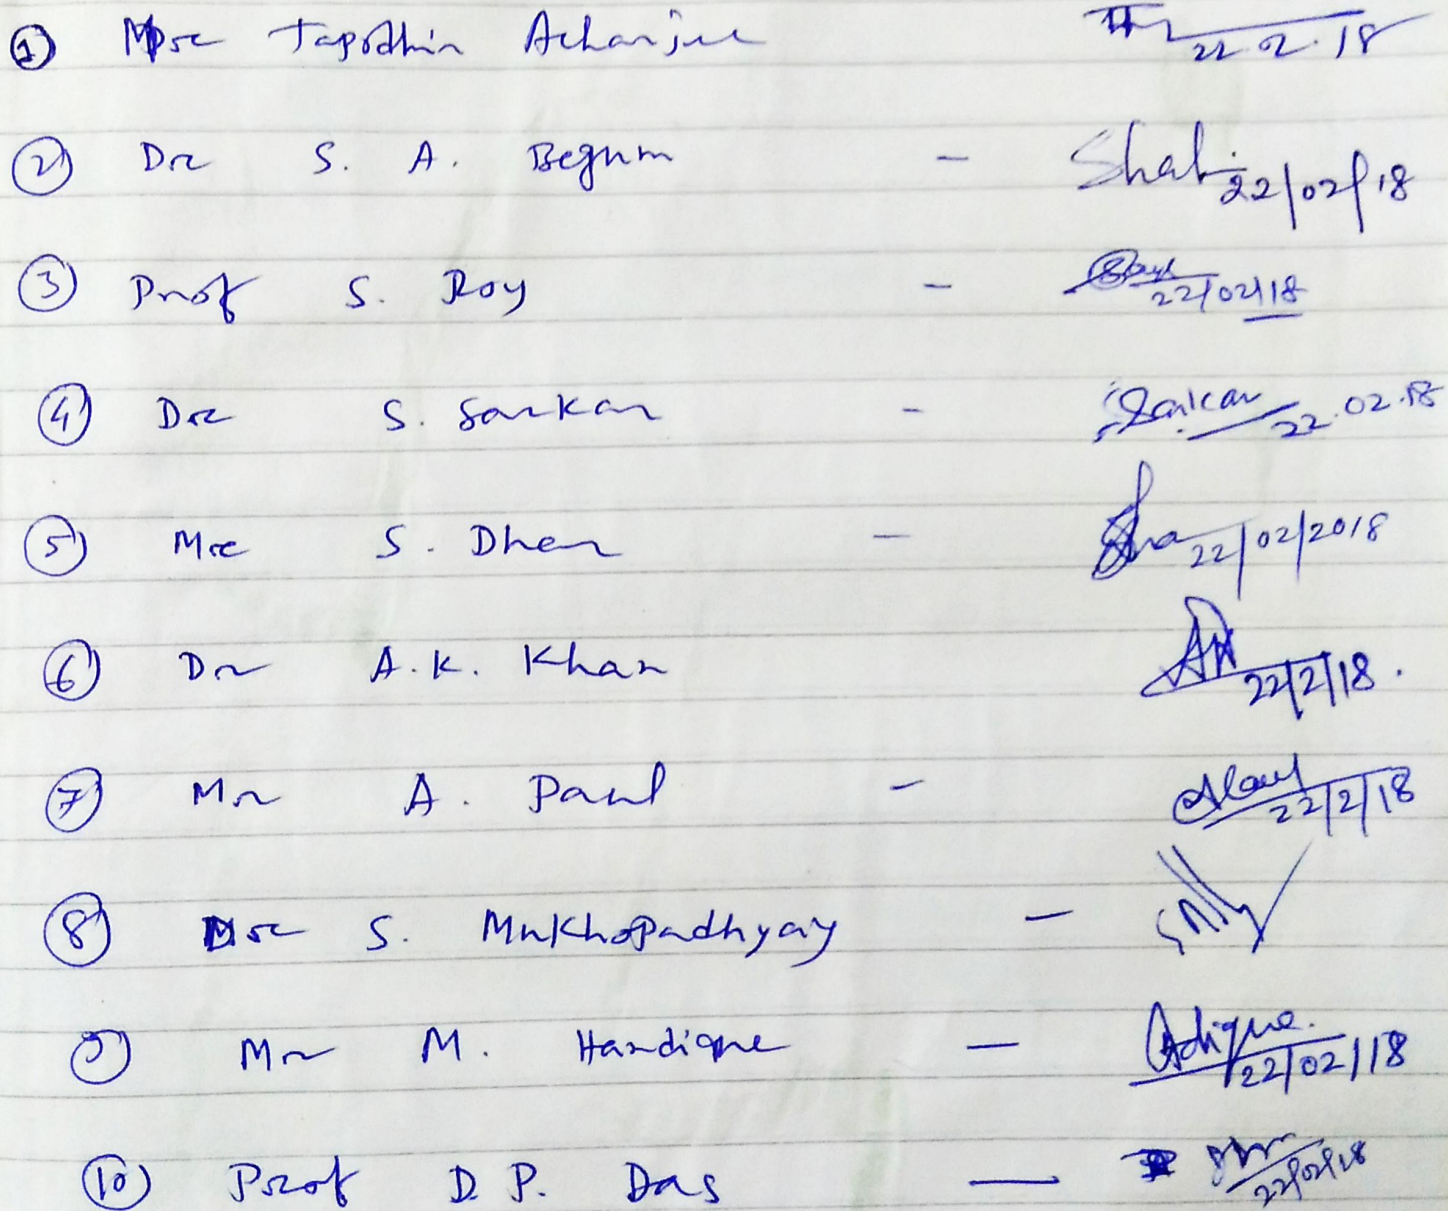 1 Mr Tapodhir Acharjee 22.2.18
2 Dr S. A. Begum - 22/02/18
3 Prof S. Roy - 22/02/18
4 Dr S. Sarkar - Sarkar 22.02.18
5 Mr S. Dhar - 22/02/2018
6 Dr A.K. Khan 22/2/18.
7 Mr A. Paul - APaul 22/2/18
8 Mr S. Mukhopadhyay -
9 Mr M. Handique - 22/02/18
10 Prof D. P. Das - 22/02/18